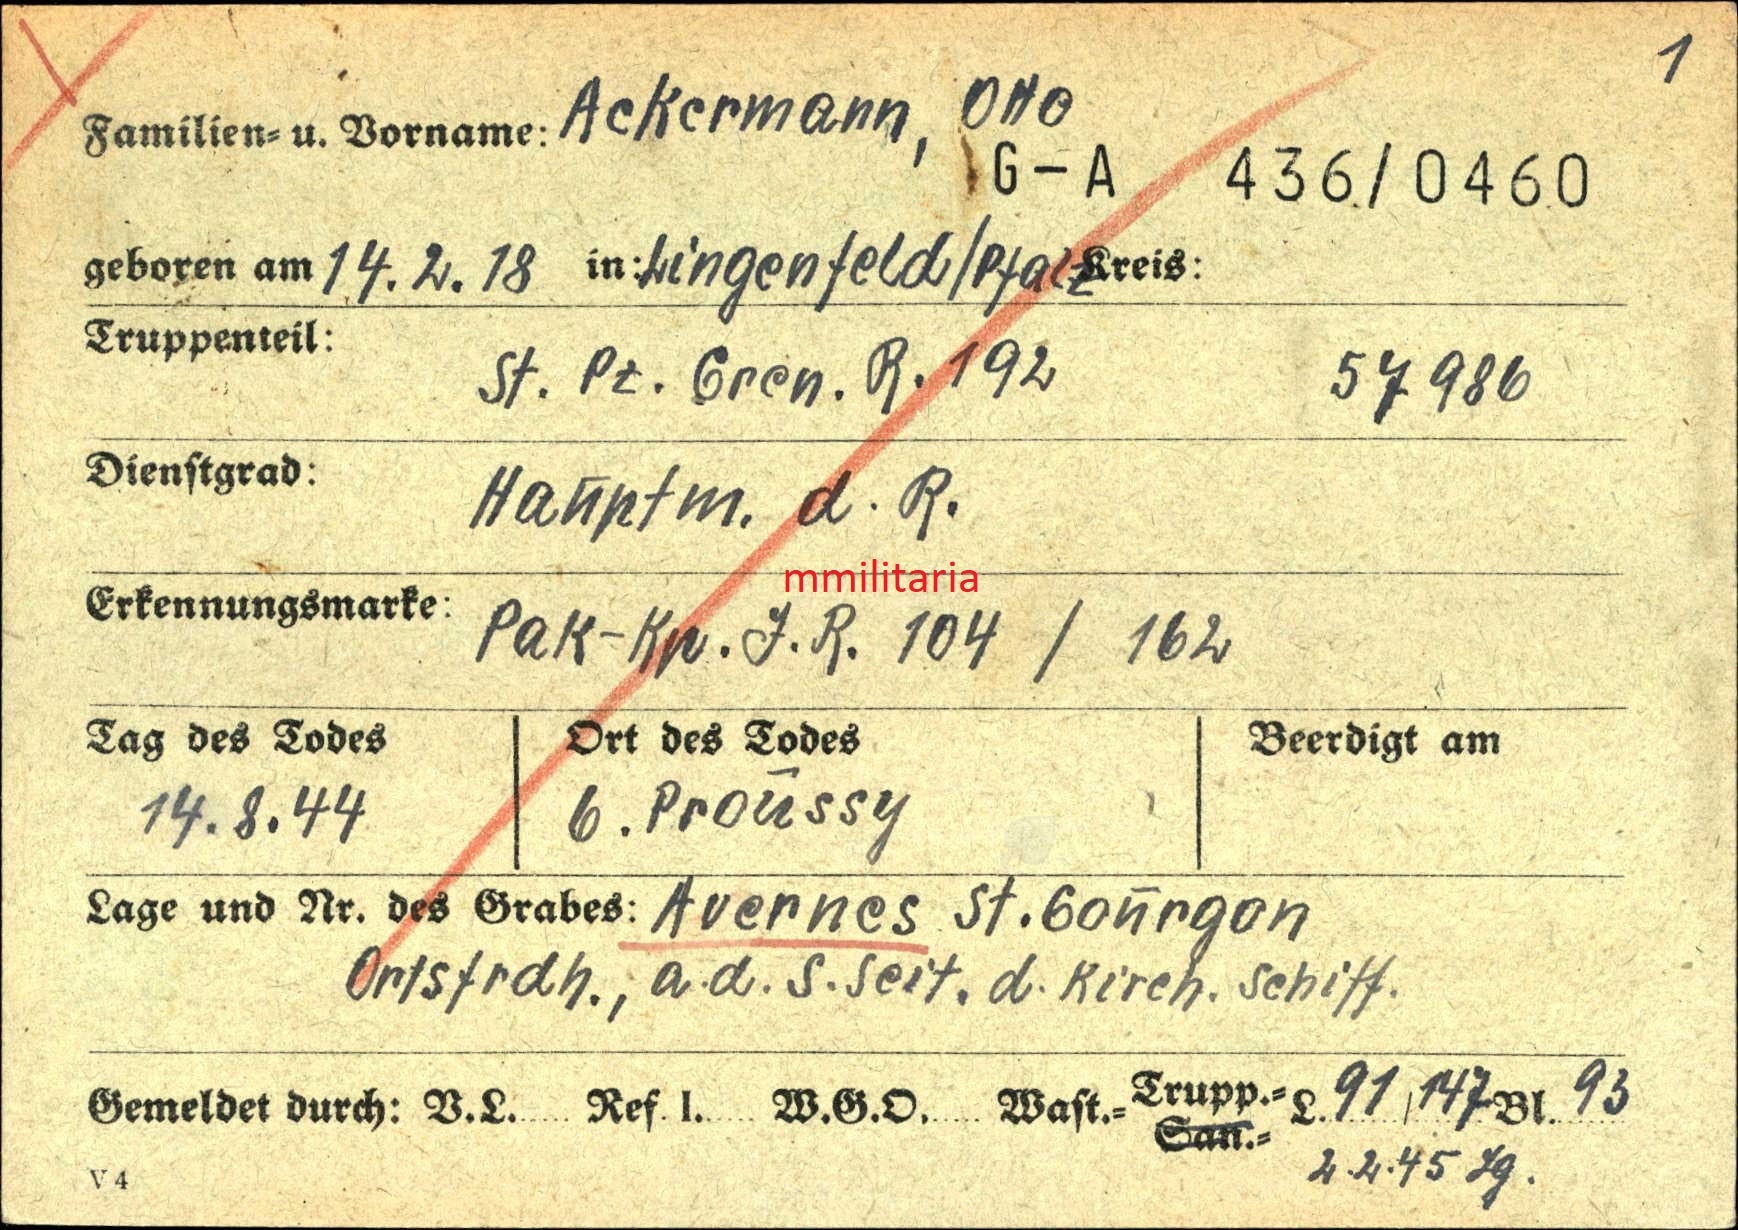 1
Familien- u. Vorname: Ackermann, Otto
G-A 436/0460
geboren am 14.2.18 in: Lingenfeld/Pfalz Kreis:
Truppenteil: St. Pz. Gren. R. 192 57 986
Dienstgrad: Hauptm. d. R.
mmilitaria
Erkennungsmarke: Pak-Kp. J.R. 104 / 162
Tag des Todes Ort des Todes Beerdigt am
14.8.44 b. Proussy
Lage und Nr. des Grabes: Avernes St. Gourgon
Ortsfrdh., a.d. S. Seit. d. Kirch. schiff.
Gemeldet durch: V.L..... Ref. I..... W.G.O..... Wast.- Trupp.- L. 91 / 147 Bl. 93
San.-
2.2.45 Jg.
V 4